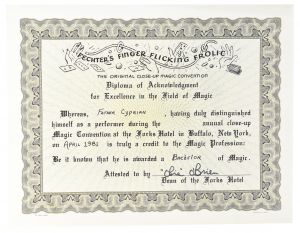 FECHTER'S FINGER FLICKING FROLIC
THE ORIGINAL CLOSE-UP MAGIC CONVENTION
Diploma of Acknowledgment
for Excellence in the Field of Magic
Whereas, Father Cyprian having duly distinguished
himself as a performer during the annual close-up
Magic Convention at the Forks Hotel in Buffalo, New York,
on APRIL 1981 is truly a credit to the Magic Profession:
Be it known that he is awarded a Bachelor of Magic.
Attested to by "Obie" O'Brien
Dean of the Forks Hotel